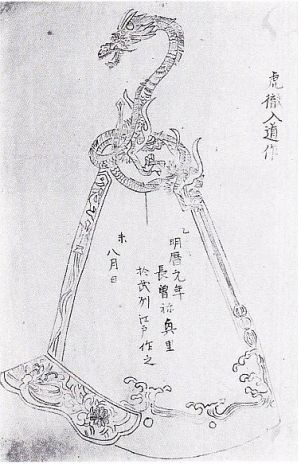 虎徹入道作
乙
明暦元年
長曽祢奥里
於武列江戸作之
未
八月日